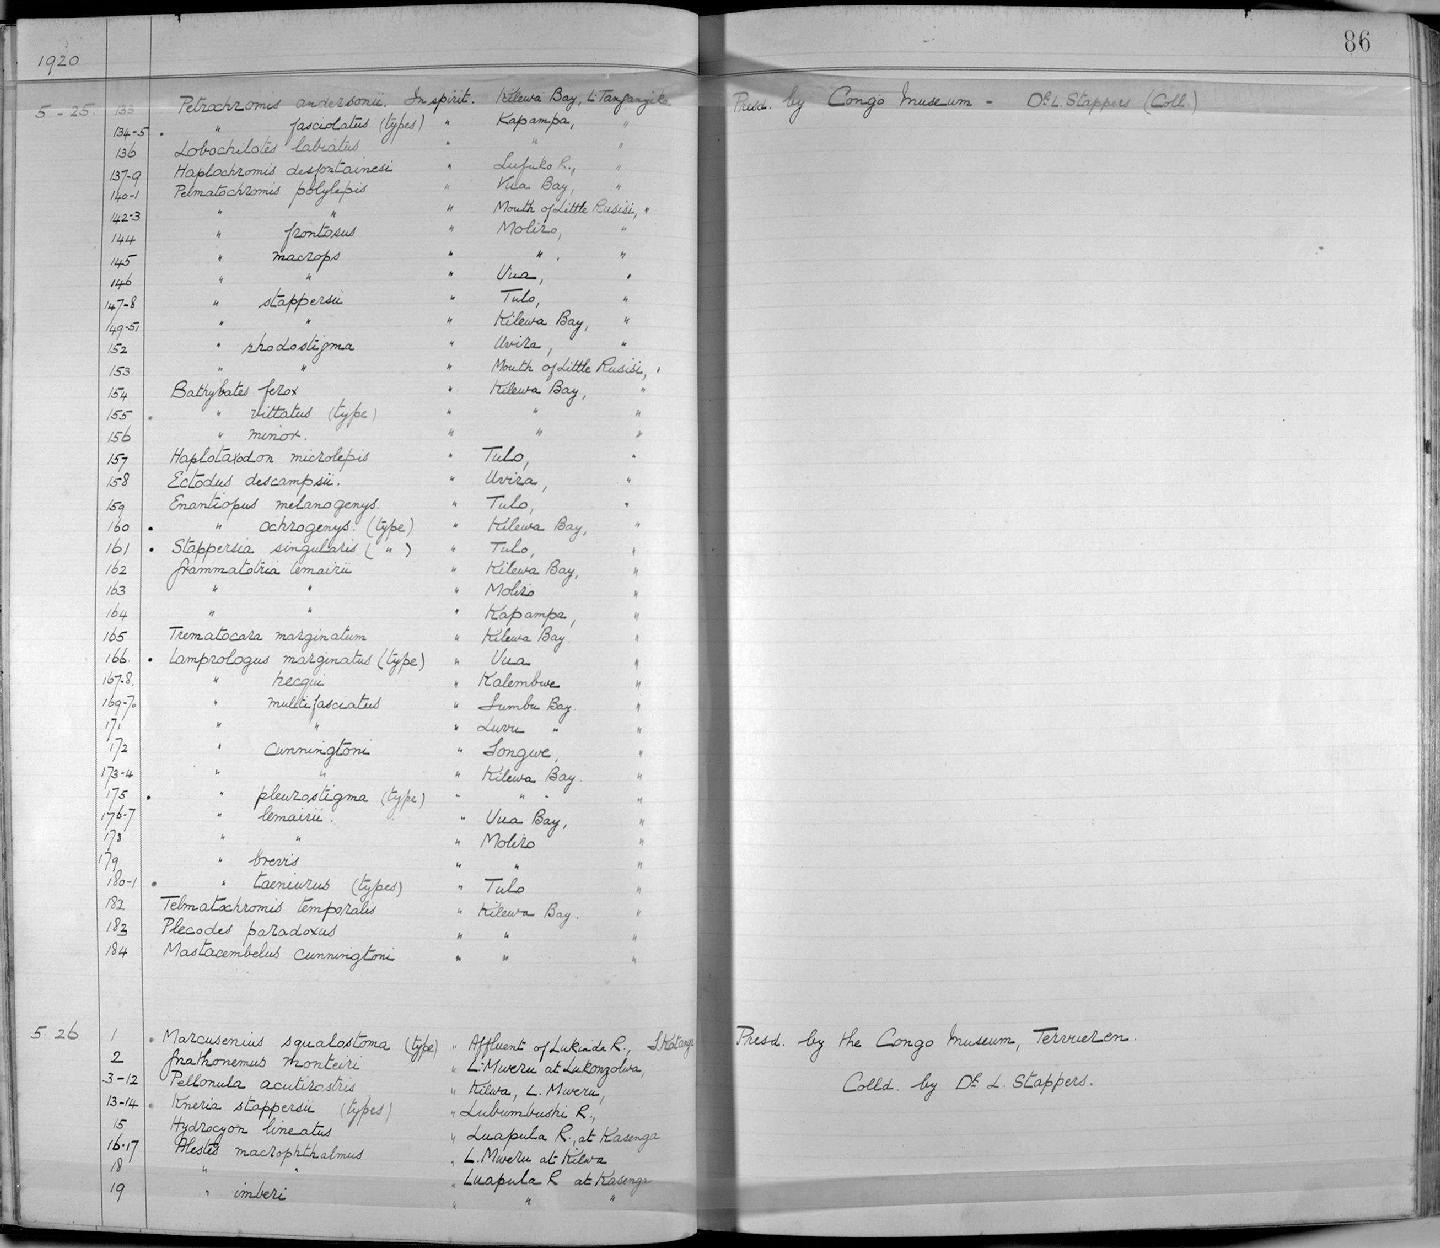 86
1920
5-25. 133 Petrochromis andersonii. In spirit. Kilewa Bay, L. Tanganyika Presd. by Congo Museum - Dr. L. Stappers (Coll.)
134-5 . " fasciolatus (types) " Kapampa, "
136 Lobochilotes labiatus " " "
137-9 Haplochromis desfontainesi " Lufuko R., "
140-1 Pelmatochromis polylepis " Vua Bay, "
142-3 " " " Mouth of Little Rusisi, "
144 " frontosus " Moliro, "
145 " macrops " " , "
146 " " " Vua, "
147-8 " stappersii " Tulo, "
149-51 " " " Kilewa Bay, "
152 " rhodostigma " Uvira, "
153 " " " Mouth of Little Rusisi, "
154 Bathybates ferox " Kilewa Bay, "
155 . " vittatus (type) " " "
156 " minor. " " "
157 Haplotaxodon microlepis " Tulo, "
158 Ectodus descampsii. " Uvira, "
159 Enantiopus melanogenys. " Tulo, "
160 . " ochrogenys. (type) " Kilewa Bay, "
161 . Stappersia singularis ( " ) " Tulo, "
162 Grammatotria lemairii " Kilewa Bay, "
163 " " " Moliro "
164 " " " Kapampa, "
165 Trematocara marginatum " Kilewa Bay "
166. . Lamprologus marginatus (type) " Vua "
167-8. " hecqui " Kalembwe "
169-70 " multifasciatus " Sumbu Bay. "
171 " " " Luvu " "
172 " cunningtoni " Songwe, "
173-4 " " " Kilewa Bay. "
175 . " pleurostigma (type) " " " "
176-7 " lemairii. " Vua Bay, "
178 " " " Moliro "
179 " brevis " " "
180-1 . " taeniurus (types) " Tulo "
182 Telmatochromis temporalis " Kilewa Bay. "
183 Plecodes paradoxus " " "
184 Mastacembelus cunningtoni " " "
5.26 1 . Marcusenius squalostoma (type) " Affluent of Lukinda R., S. Katanga Presd. by the Congo Museum, Tervueren.
2 Gnathonemus monteiri " L. Mweru at Lukonzolwa,
3-12 Pellonula acutirostris " Kilwa, L. Mweru, Colld. by Dr. L. Stappers.
13-14 . Kneria stappersii (types) " Lubumbashi R.,
15 Hydrocyon lineatus " Luapula R., at Kasenga
16-17 Alestes macrophthalmus " L. Mweru at Kilwa
18 " " " Luapula R at Kasenga
19 " imberi " " "